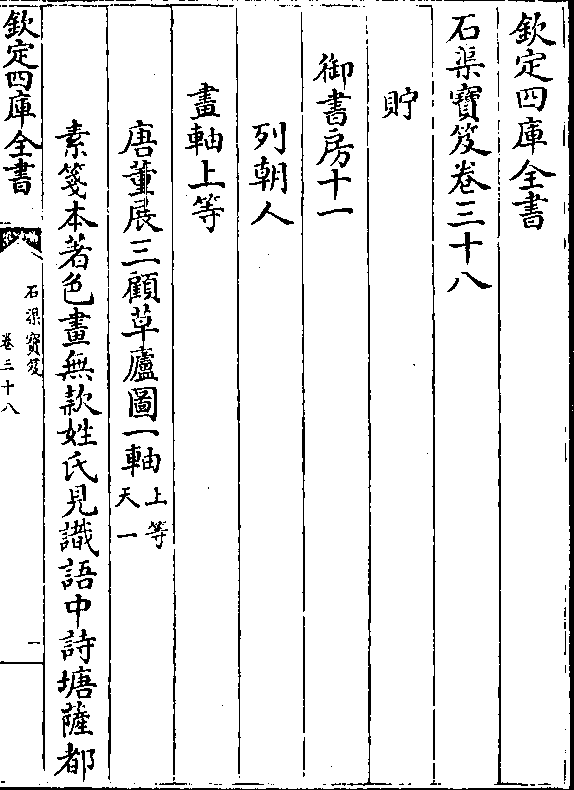 欽定四庫全書
石渠寶笈卷三十八
貯
御書房十一
列朝人
畫軸上等
唐董展三顧草廬圖一軸上等天一
素箋本著色畫無款姓氏見識語中詩塘薩都
欽定四庫全書
石渠寶笈
卷三十八
一